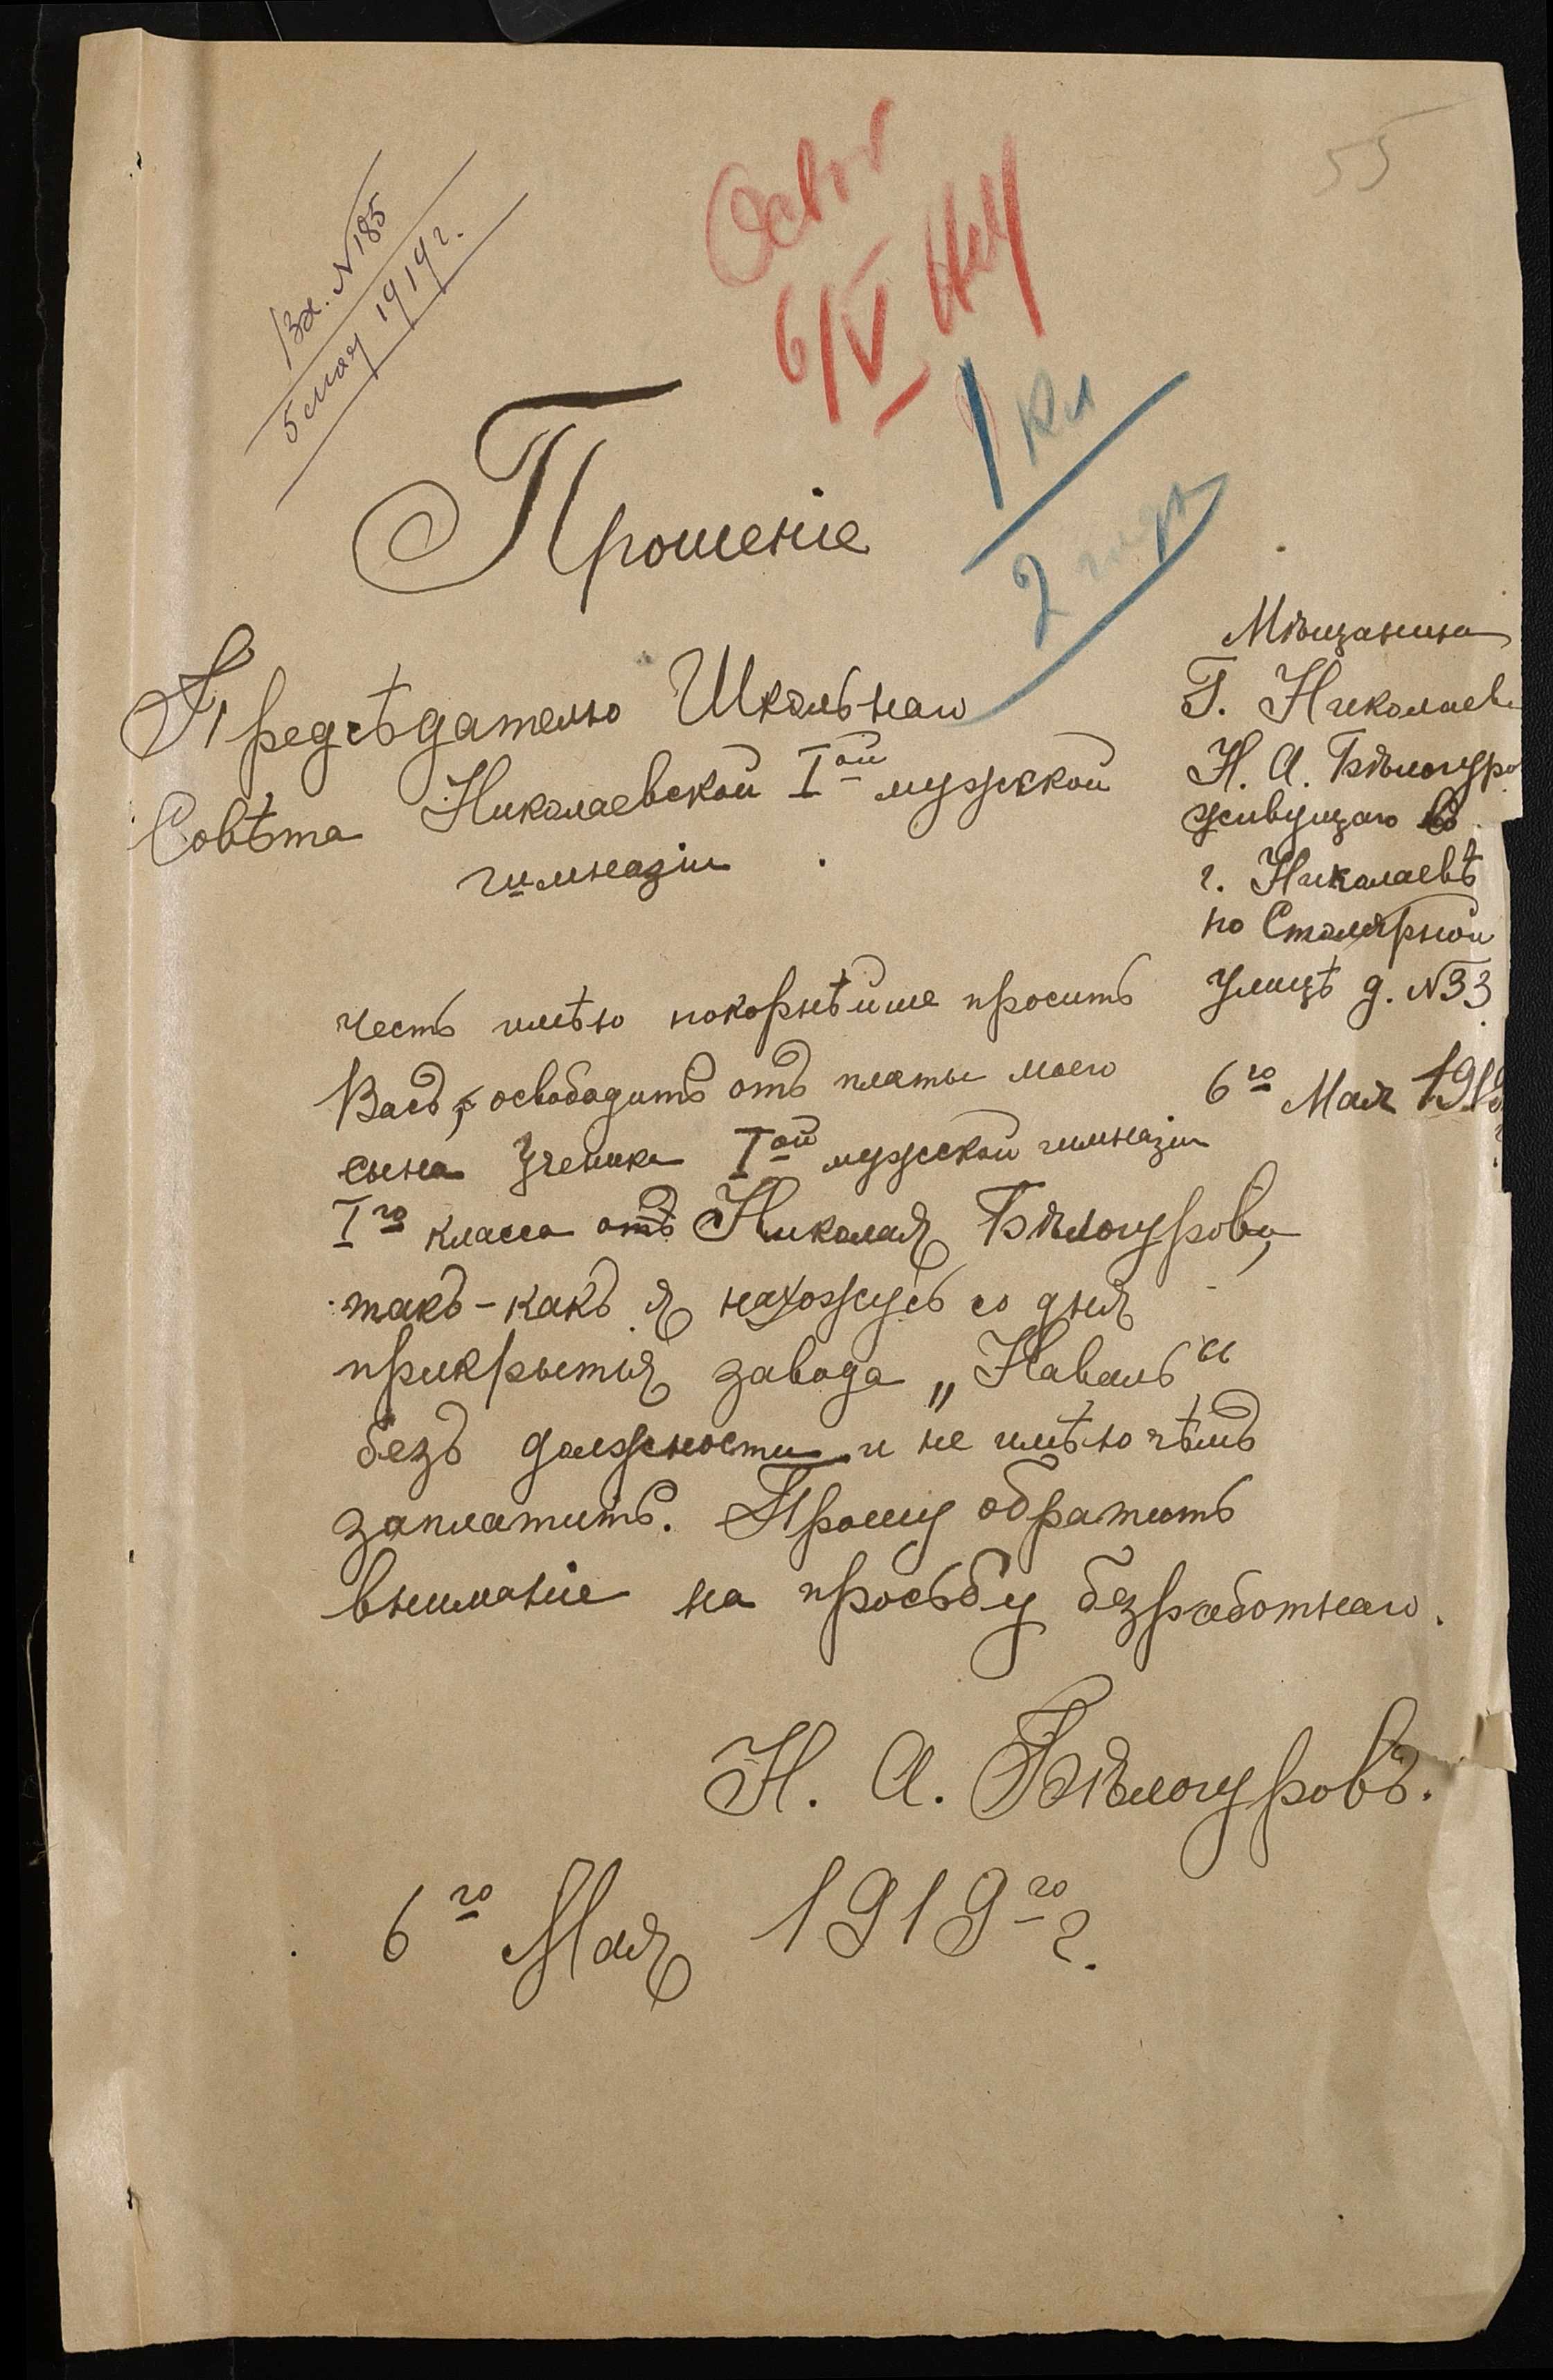 55
Вх. № 185
5 мая 1919 г.
6/V
1 кл
2
Прошеніе
Предсѣдателю Школьнаго
Совѣта Николаевской Iой мужской
гимназіи
Мѣщанина
Г. Николаев
Н. А. Бѣлогуро
живущаго в
г. Николаевѣ
по Столярной
улицѣ д. №33
6го Мая 191
Честь имѣю покорнѣйше просить
Васъ, освободить отъ платы моего
сына Ученика Iой мужской гимназіи
Iго класса отъ Николая Бѣлогурова,
такъ-какъ я нахожусь со дня
прикрытия завода „Наваль“
безъ должности и не имѣю чѣмъ
заплатить. Прошу обратить
вниманіе на просьбу безработнаго.
Н. А. Бѣлогуровъ.
6го Мая 1919го г.